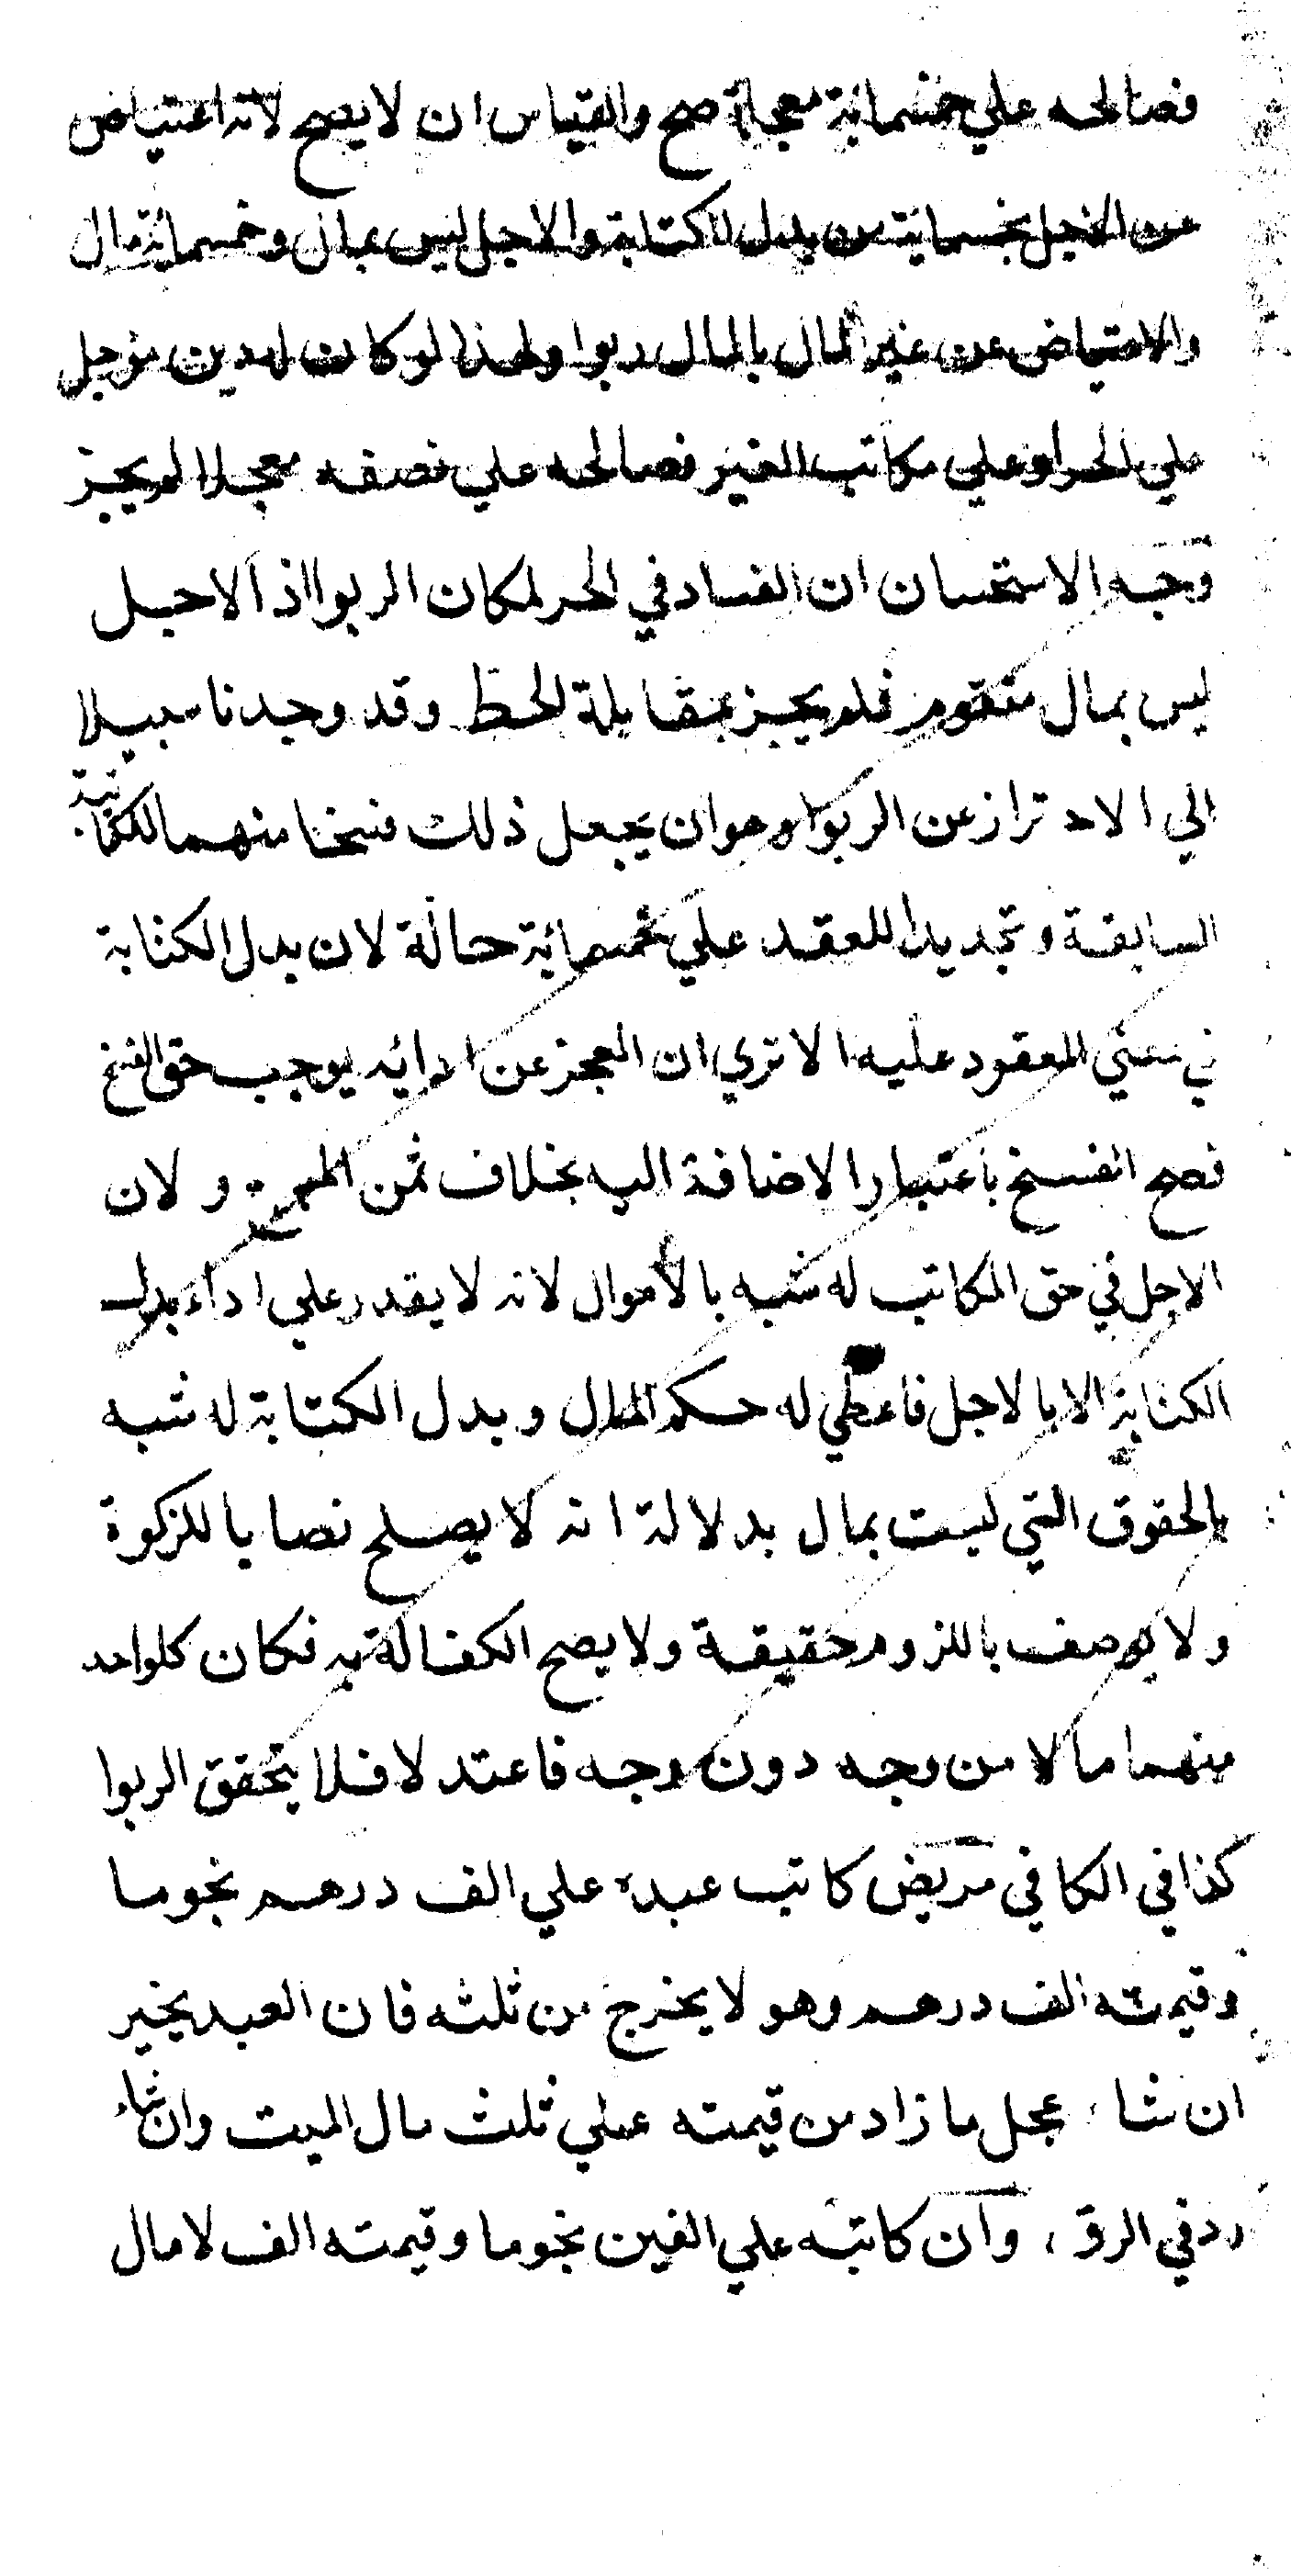 فصالحه علي خمسمائة معجلة صح والقياس ان لا يصح لانه اعتياض
عن الاجل بخمسمائة من بدل الكتابة والاجل ليس بمال وخمسمائة مال
والاعتياض عن غير المال بالمال ربوا ولهذا لو كان له دين مؤجل
علي الحر او علي مكاتب الغير فصالحه علي نصفه معجلا لم يجز
وجه الاستحسان ان الفساد في الحر لمكان الربوا اذ الاجل
ليس بمال متقوم فلم يجز بمقابلة الحط وقد وجدنا سبيلا
الي الاحتراز عن الربوا وهو ان يجعل ذلك فسخا منهما للكتابة
السابقة وتجديدا للعقد علي خمسمائة حالة لان بدل الكتابة
في معني المعقود عليه الا تري ان العجز عن ادائه يوجب حق الفسخ
فصح الفسخ باعتبار الاضافة اليه بخلاف ثمن المبيع ولان
الاجل في حق المكاتب له شبه بالأموال لانه لا يقدر علي اداء بدل
الكتابة الا بالاجل فاعطي له حكم المال وبدل الكتابة له شبه
بالحقوق التي ليست بمال بدلالة انه لا يصلح نصابا للزكوة
ولا يوصف باللزوم حقيقة ولا يصح الكفالة به فكان كلواحد
منهما مالا من وجه دون وجه فاعتدلا فلا يتحقق الربوا
كذا في الكافي مريض كاتب عبده علي الف درهم نجوما
وقيمته الف درهم وهو لا يخرج من ثلثه فان العبد يخير
ان شاء عجل ما زاد من قيمته علي ثلث مال الميت وان شاء
رد في الرق ، وان كاتبه علي الفين نجوما وقيمته الف لا مال